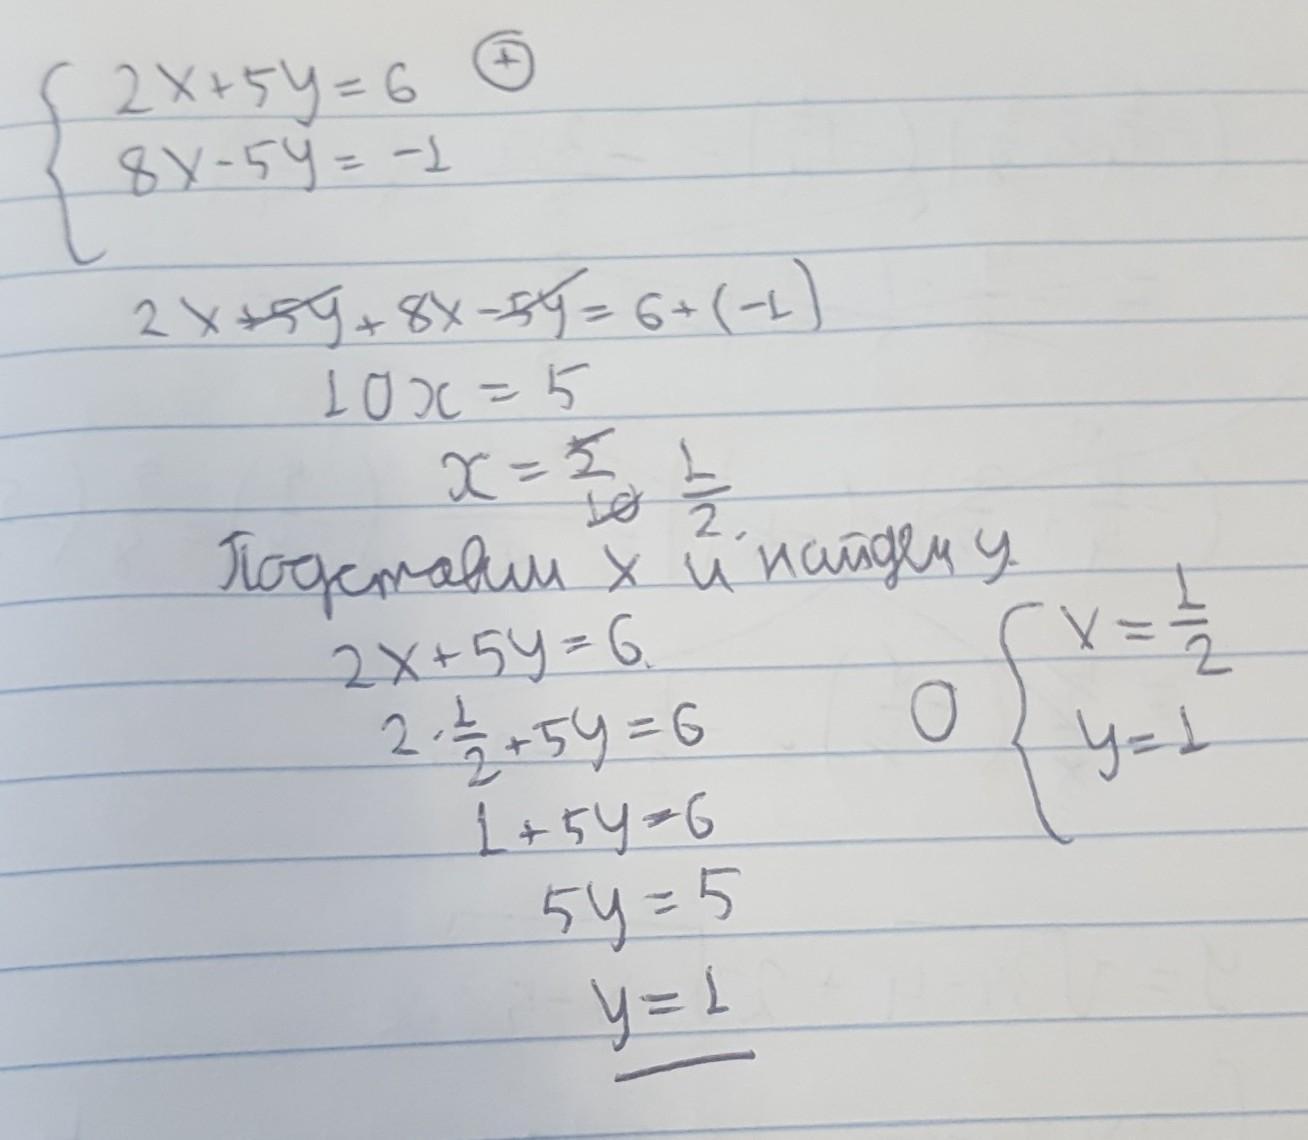 2x+5y=6 ⊕
8x-5y=-1
2x+5y+8x-5y=6+(-1)
10x=5
x=5/10 1/2.
Подставим x и найдем y.
2x+5y=6.
2·1/2+5y=6
1+5y=6
5y=5
y=1
O { x=1/2
y=1